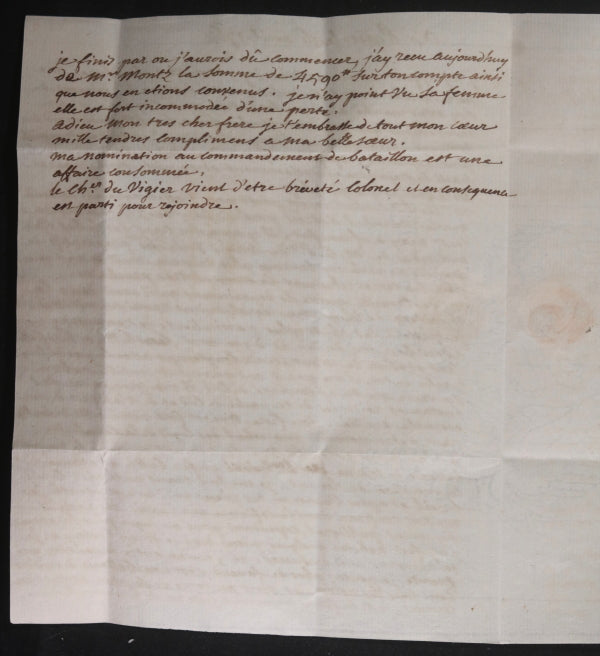 je finis par ou j'aurois dû commencer, j'ay recu aujourdhuy
de Mr. Montz la somme de 4590# sur ton compte ainsi
que nous en etions convenus. je n'ay point vu sa femme
elle est fort incommodée d'une perte.
adieu mon tres cher frere je t'embrasse de tout mon cœur
mille tendres complimens a ma belle sœur.
ma nomination au commandement de bataillon est une
affaire consommée.
le Cher. du Vigier vient d'etre bréveté Colonel et en consequence
est parti pour rejoindre.